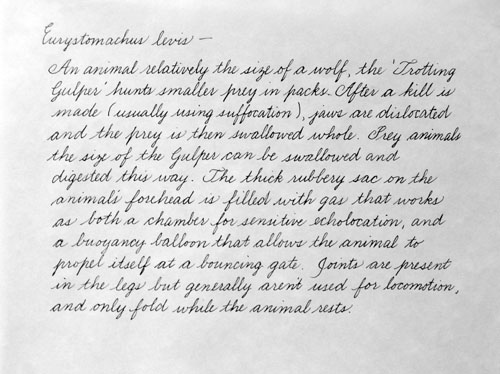 Eurystomachus levis —
An animal relatively the size of a wolf, the 'Trotting
Gulper' hunts smaller prey in packs. After a kill is
made (usually using suffocation), jaws are dislocated
and the prey is then swallowed whole. Prey animals
the size of the Gulper can be swallowed and
digested this way. The thick rubbery sac on the
animal's forehead is filled with gas that works
as both a chamber for sensitive echolocation, and
a buoyancy balloon that allows the animal to
propel itself at a bouncing gate. Joints are present
in the legs but generally aren't used for locomotion,
and only fold while the animal rests.